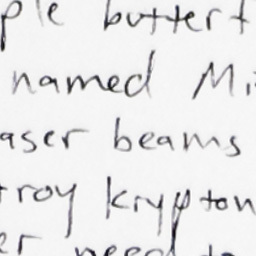 ple butterf
named Mi
aser beams
troy krypton
er need to